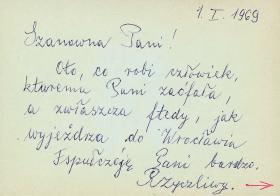 1. I. 1969
Szanowna Pani!
Oto, co robi człowiek,
ktoremu Pani zaófała,
a zwłaszcza ftedy, jak
wyjeżdrza do Wrocławia
Fspułczóję Pani bardzo.
Rzyczliwy.